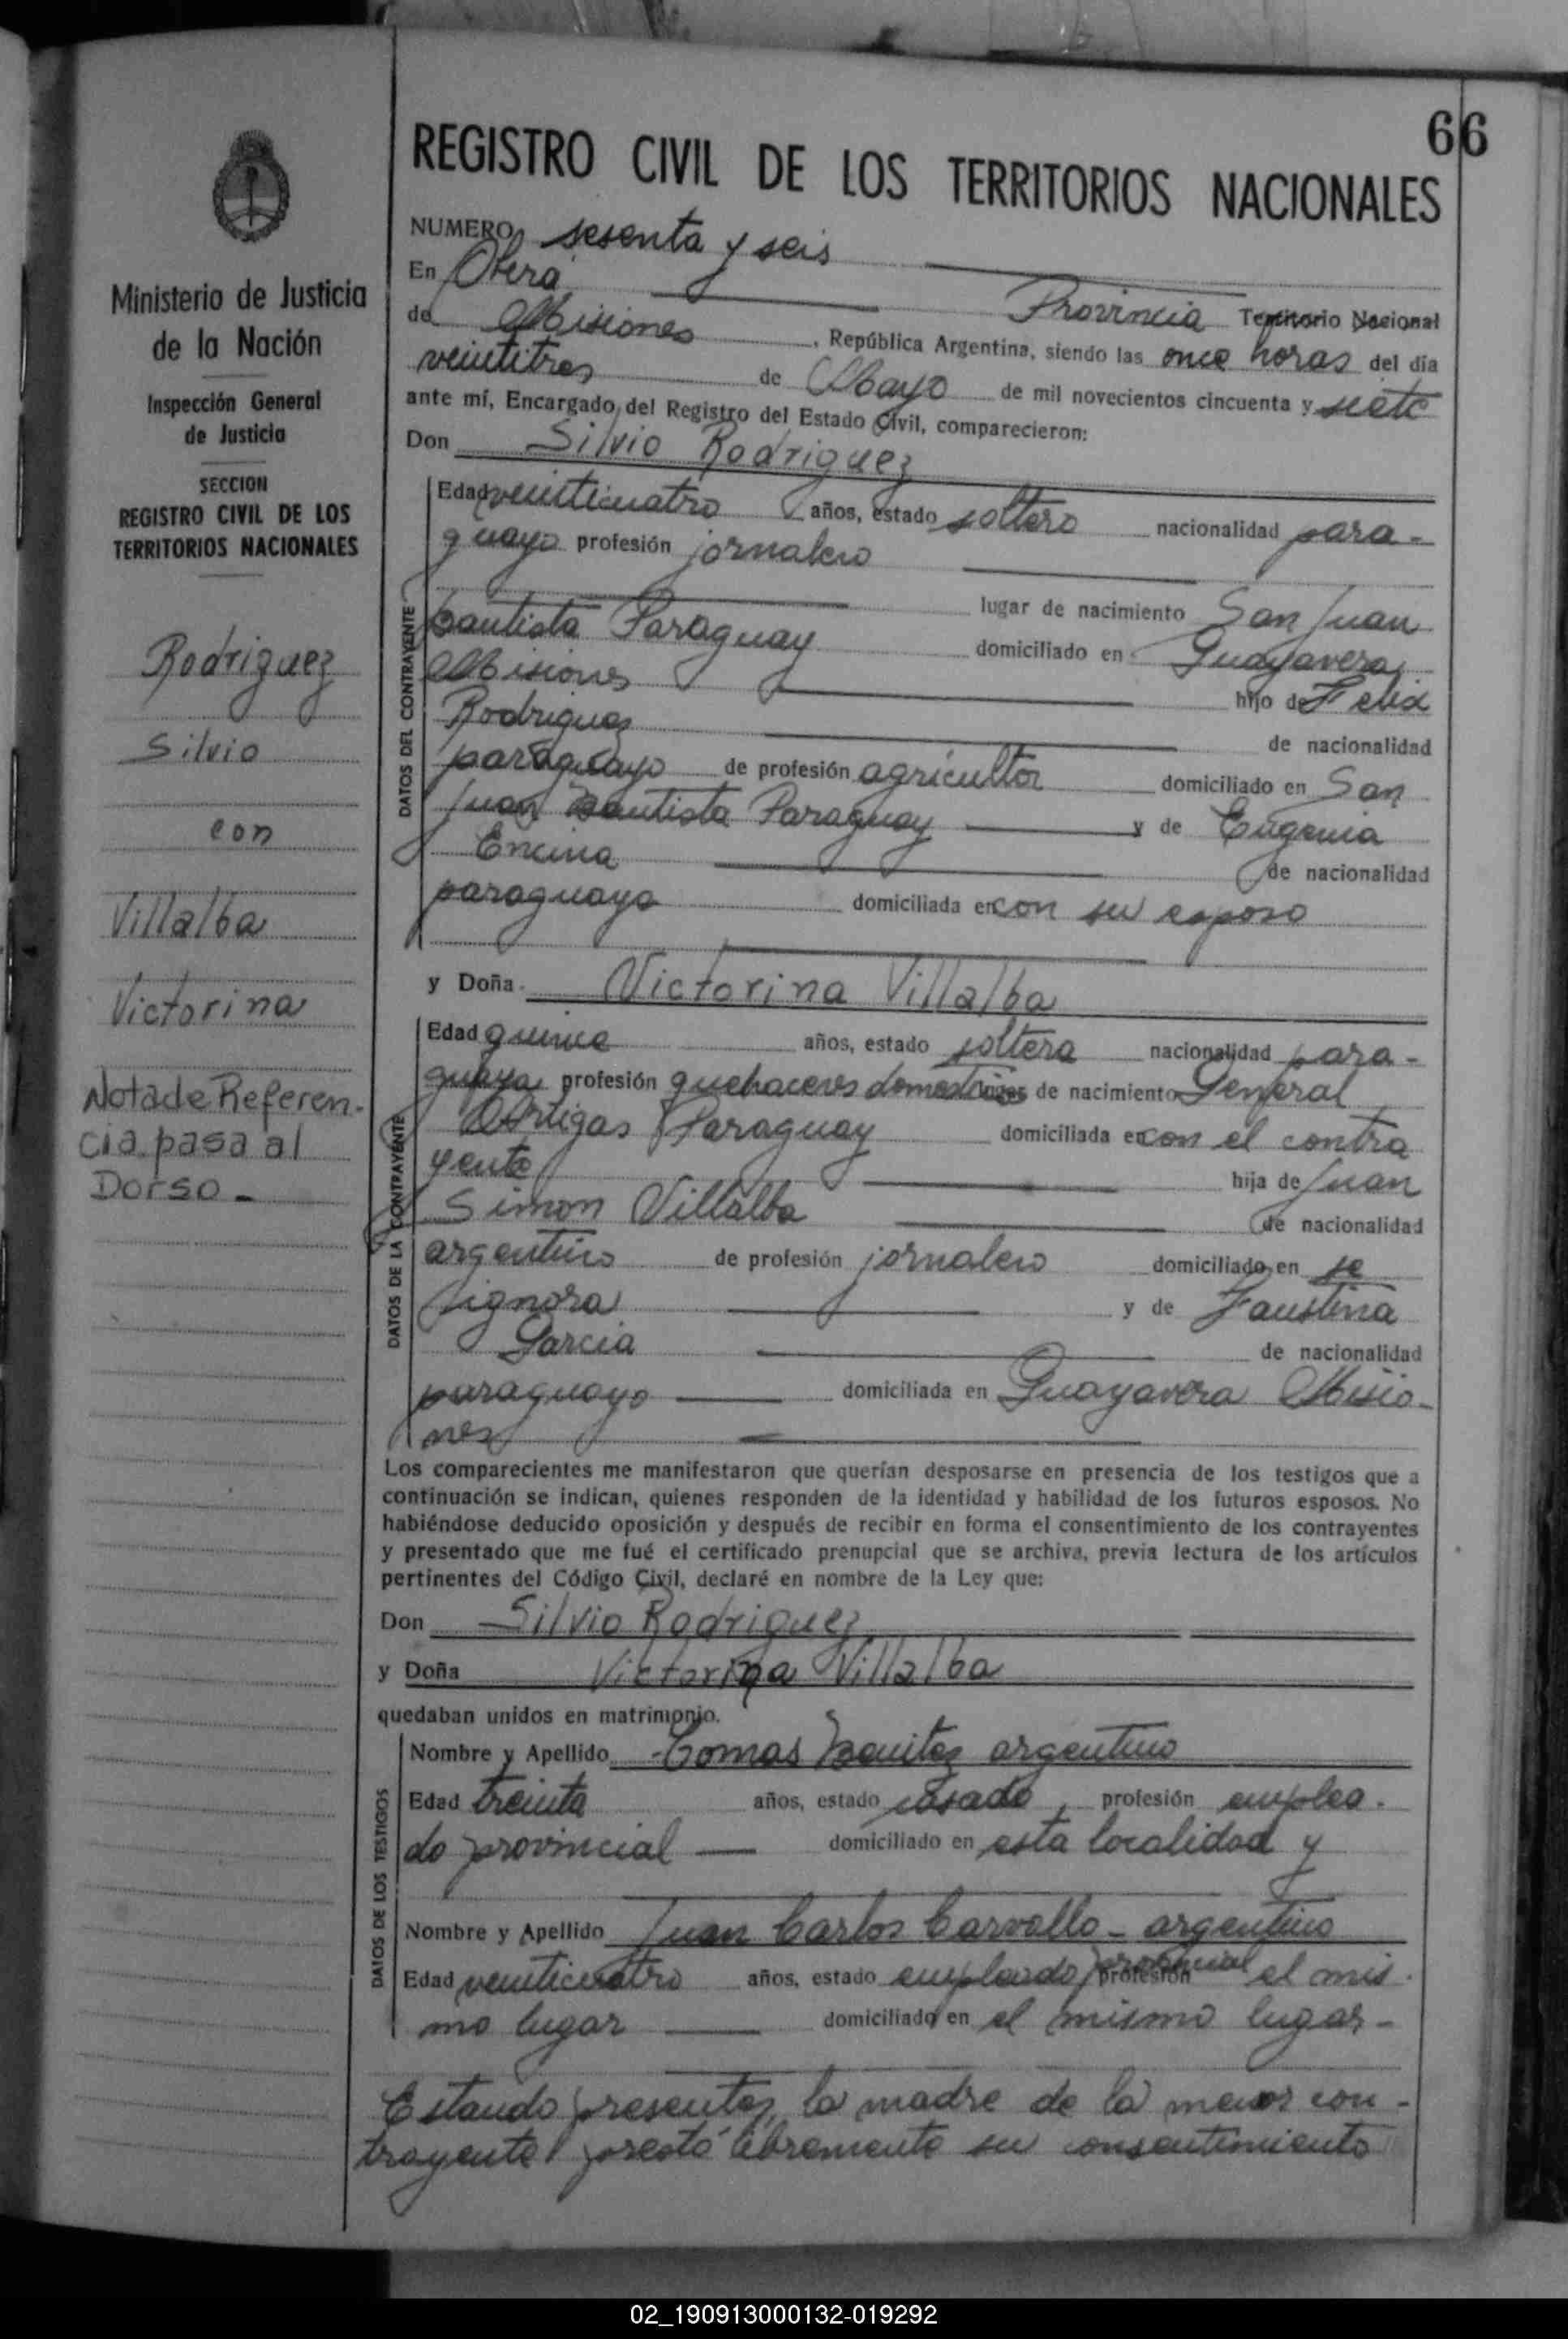 66
REGISTRO CIVIL DE LOS TERRITORIOS NACIONALES
NUMERO sesenta y seis
En Oberá
Provincia Territorio Nacional
de Misiones, República Argentina, siendo las once horas del día
veintitres de Mayo de mil novecientos cincuenta y siete
ante mí, Encargado del Registro del Estado Civil, comparecieron:
Don Silvio Rodriguez
Edad veinticuatro años, estado soltero nacionalidad para-
guayo profesión jornalero
lugar de nacimiento San Juan
bautista Paraguay domiciliado en Guayavera
Misiones hijo de Felix
Rodriguez de nacionalidad
paraguayo de profesión agricultor domiciliado en San
Juan Bautista Paraguay y de Eugenia
Encina de nacionalidad
paraguaya domiciliada en con su esposo
y Doña Victorina Villalba
Edad quince años, estado soltera nacionalidad para-
guaya profesión quehaceres domesticos lugar de nacimiento General
Artigas Paraguay domiciliada en con el contra
yente hija de Juan
Simon Villalba de nacionalidad
argentino de profesión jornalero domiciliado en se
ignora y de Faustina
Garcia de nacionalidad
paraguayo domiciliada en Guayavera Misio-
nes
DATOS DEL CONTRAYENTE
DATOS DE LA CONTRAYENTE
Los comparecientes me manifestaron que querían desposarse en presencia de los testigos que a
continuación se indican, quienes responden de la identidad y habilidad de los futuros esposos. No
habiéndose deducido oposición y después de recibir en forma el consentimiento de los contrayentes
y presentado que me fué el certificado prenupcial que se archiva, previa lectura de los artículos
pertinentes del Código Civil, declaré en nombre de la Ley que:
Don Silvio Rodriguez
y Doña Victorina Villalba
quedaban unidos en matrimonio.
Nombre y Apellido Tomas Benitez argentino
Edad treinta años, estado casado, profesión emplea-
do provincial domiciliado en esta localidad y
Nombre y Apellido Juan Carlos Carvallo - argentino
Edad veinticuatro años, estado empleado provincial profesión el mis-
mo lugar domiciliado en el mismo lugar-
DATOS DE LOS TESTIGOS
Estando presente, la madre de la menor con-
trayente prestó libremente su consentimiento
Ministerio de Justicia
de la Nación
Inspección General
de Justicia
SECCION
REGISTRO CIVIL DE LOS
TERRITORIOS NACIONALES
Rodriguez
Silvio
con
Villalba
Victorina
Nota de Referen-
cia pasa al
Dorso-
02_190913000132-019292